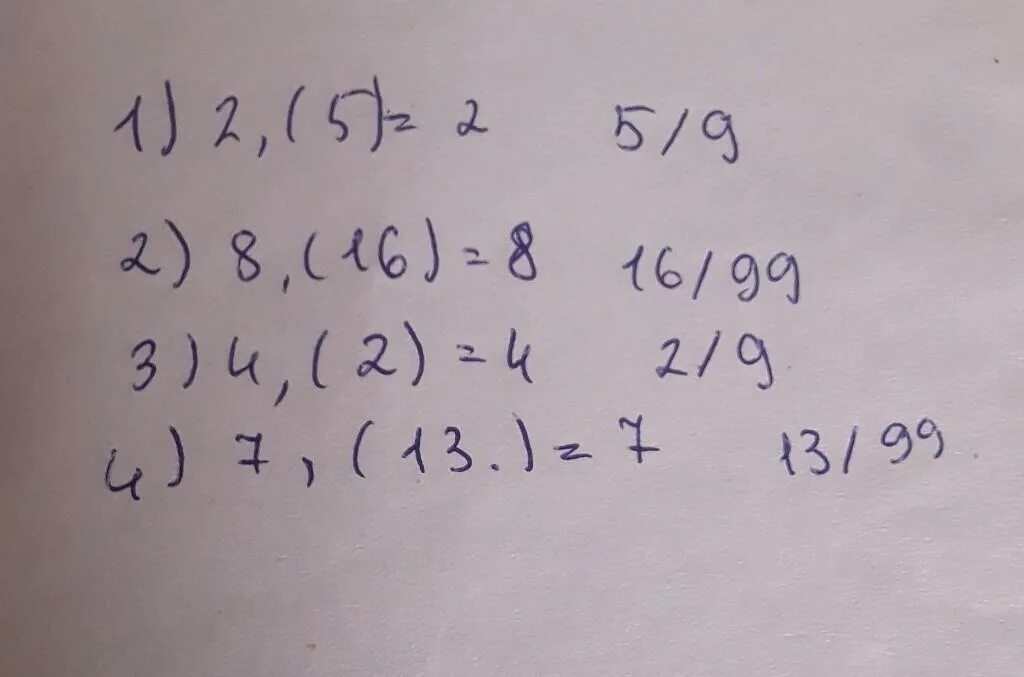 1) 2,(5)= 2 5/9
2) 8,(16)=8 16/99
3) 4,(2)=4 2/9
4) 7,(13.)=7 13/99